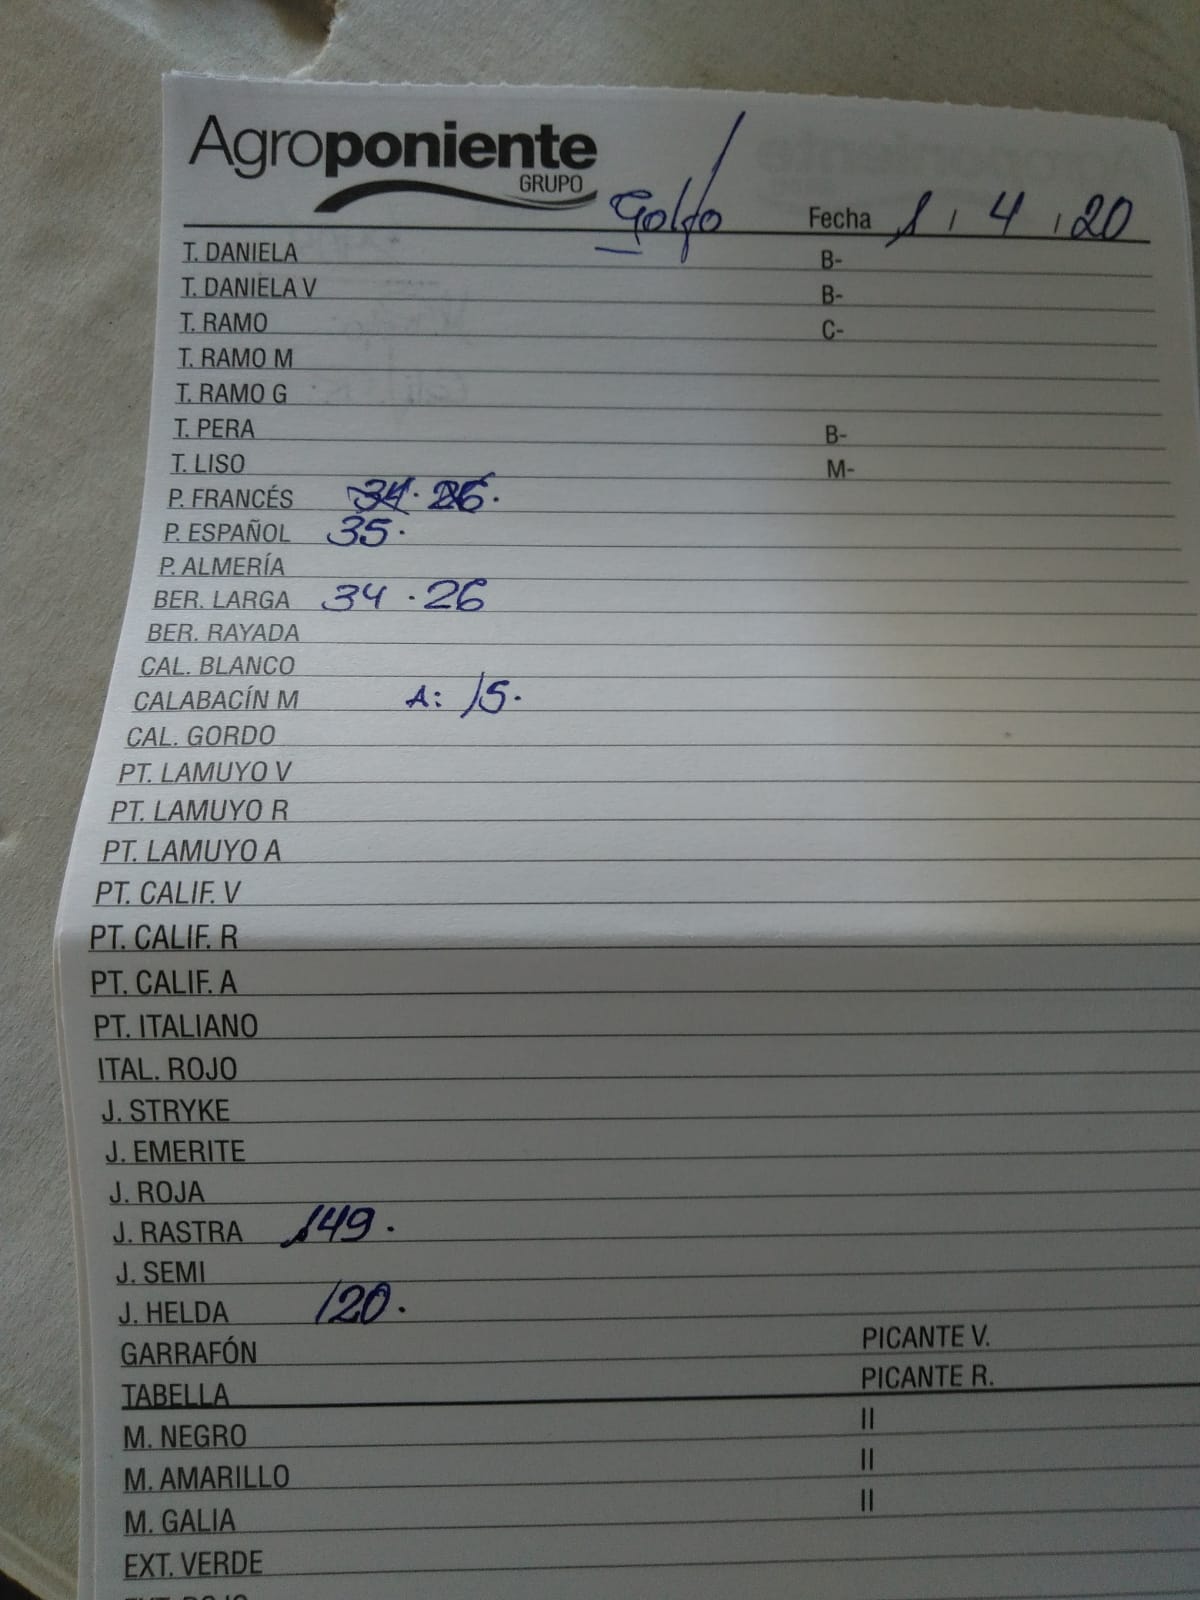 Agroponiente
GRUPO
Golfo Fecha 1 / 4 / 20
T. DANIELA B-
T. DANIELA V B-
T. RAMO C-
T. RAMO M
T. RAMO G
T. PERA B-
T. LISO M-
P. FRANCÉS 34. 26.
P. ESPAÑOL 35.
P. ALMERÍA
BER. LARGA 34 . 26
BER. RAYADA
CAL. BLANCO
CALABACÍN M A: 15.
CAL. GORDO
PT. LAMUYO V
PT. LAMUYO R
PT. LAMUYO A
PT. CALIF. V
PT. CALIF. R
PT. CALIF. A
PT. ITALIANO
ITAL. ROJO
J. STRYKE
J. EMERITE
J. ROJA
J. RASTRA 149.
J. SEMI
J. HELDA 120.
GARRAFÓN PICANTE V.
TABELLA PICANTE R.
M. NEGRO II
M. AMARILLO II
M. GALIA II
EXT. VERDE